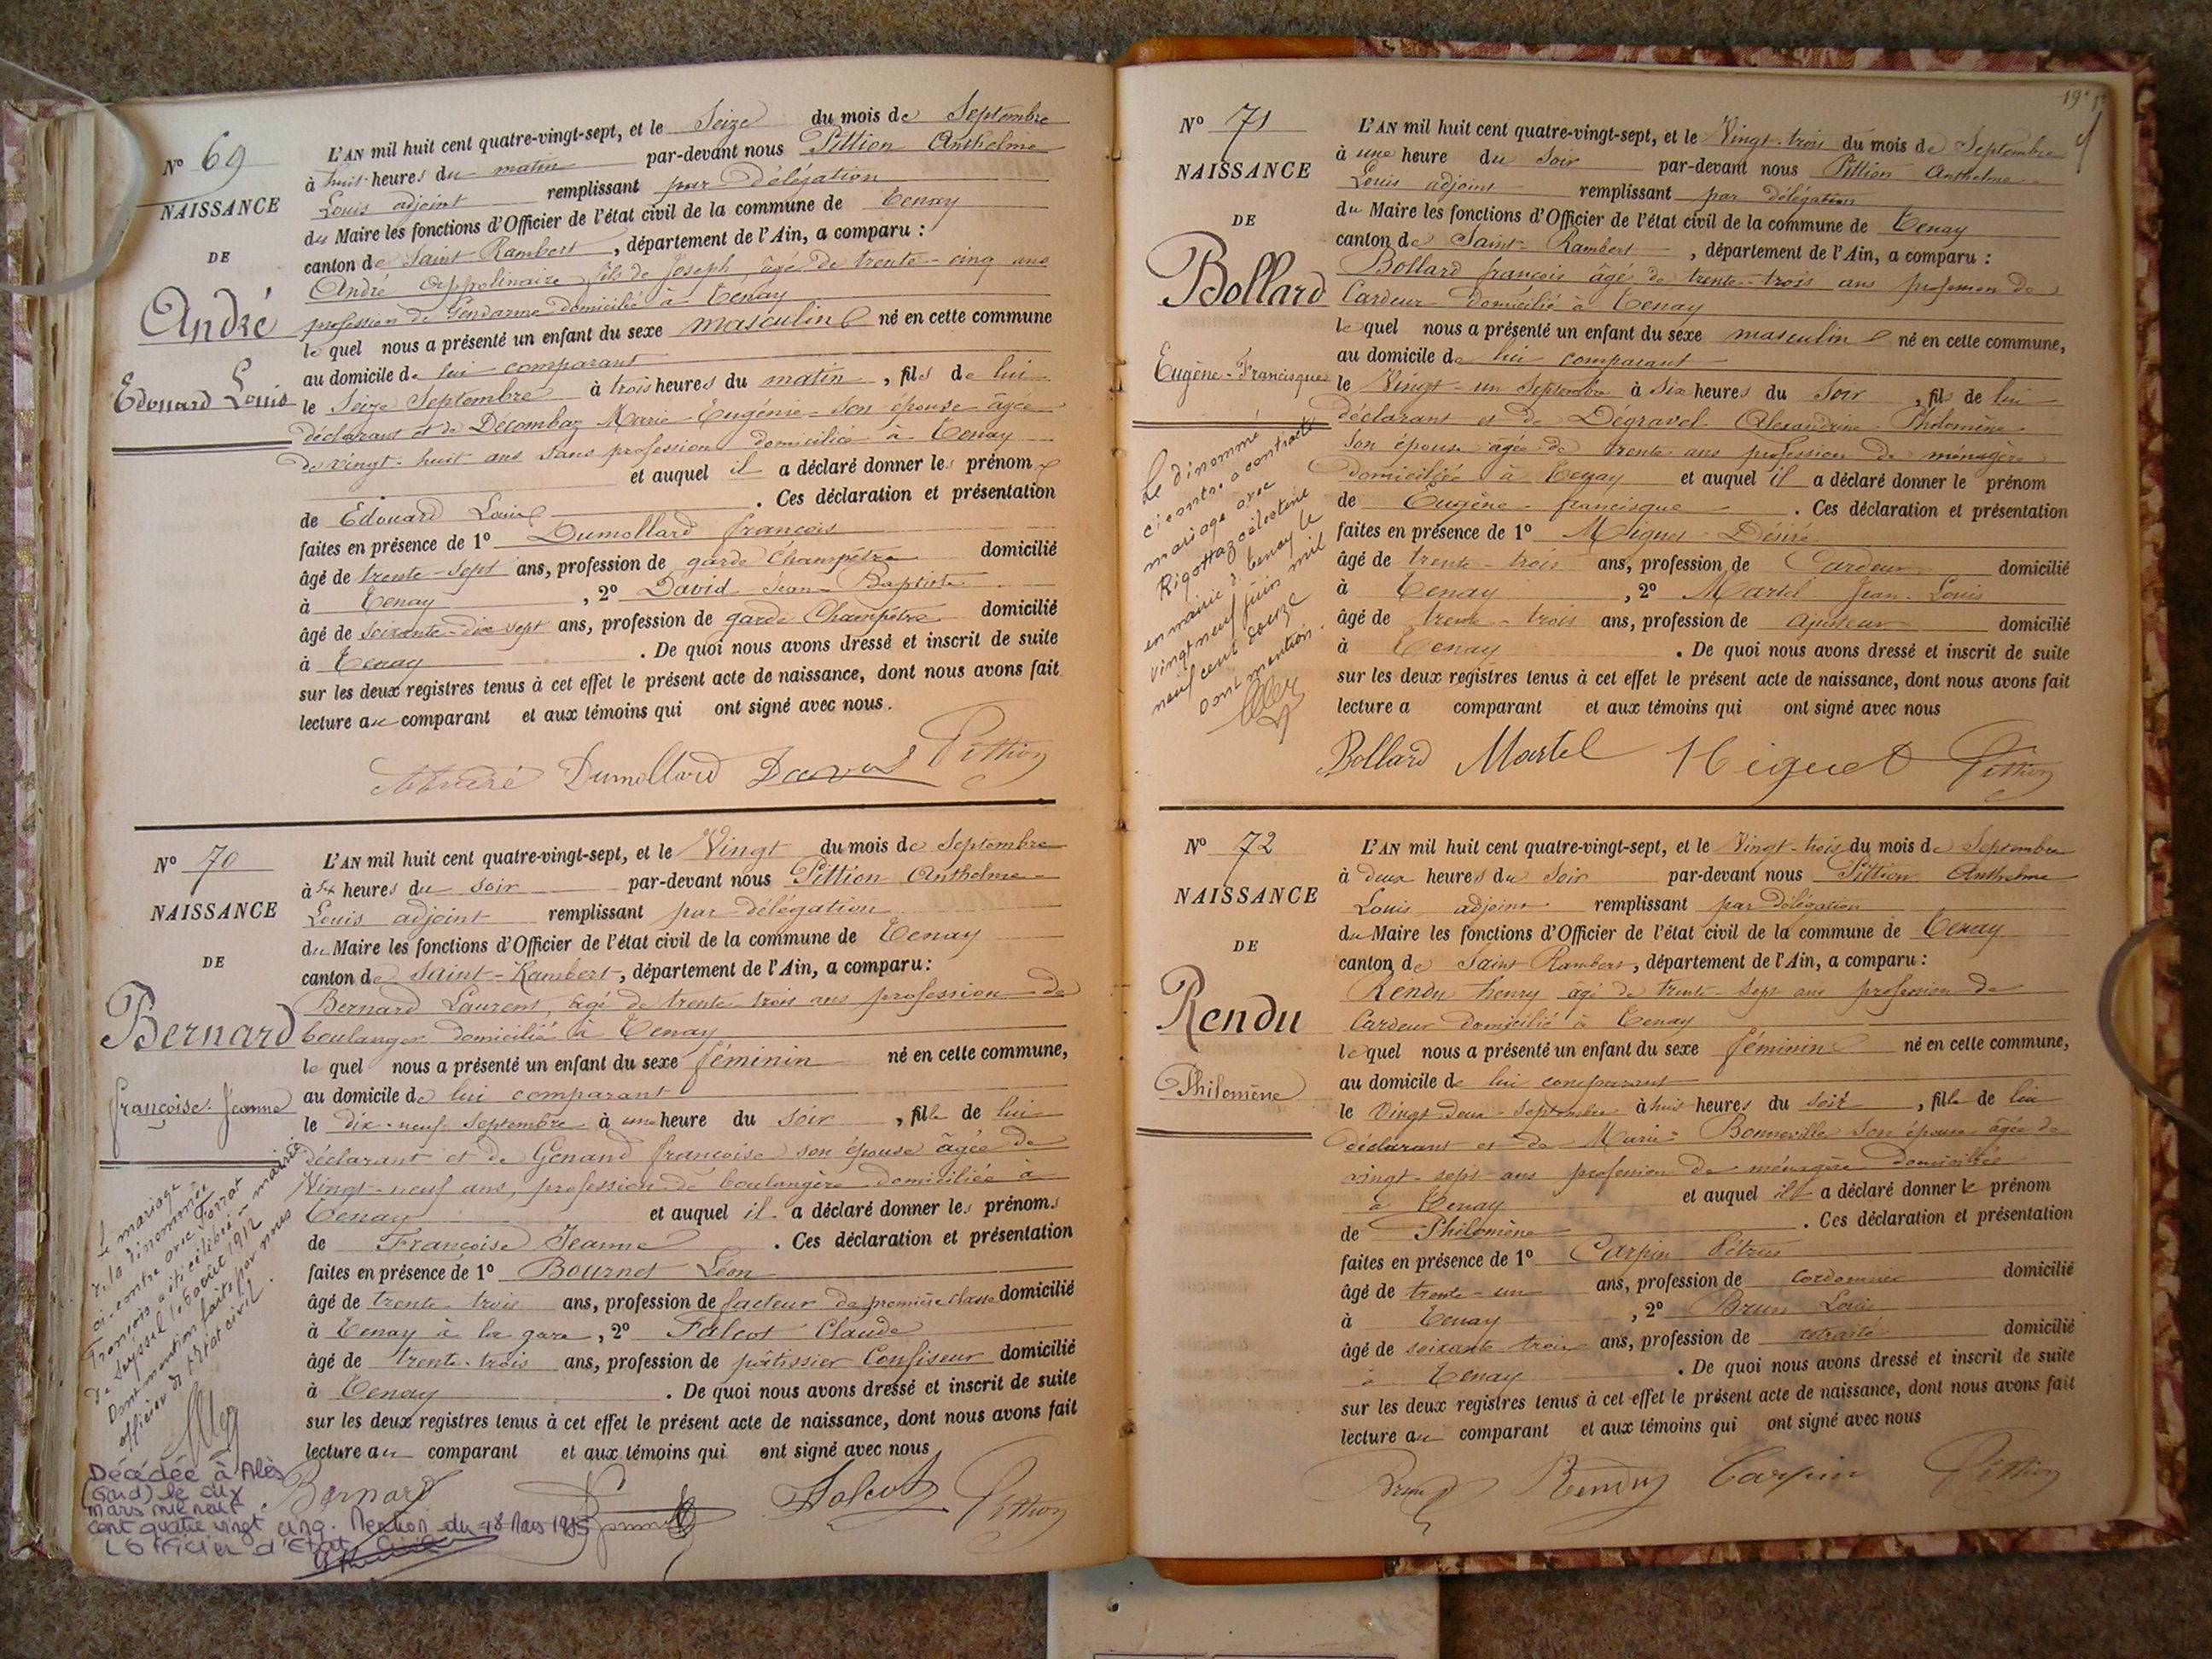 N° 69
NAISSANCE
DE
André
Edouard Louis
L'AN mil huit cent quatre-vingt-sept, et le Seize du mois de Septembre
à huit heures du matin par-devant nous Pittion Anthelme
Louis adjoint remplissant par délégation
du Maire les fonctions d'Officier de l'état civil de la commune de Tenay
canton de Saint Rambert, département de l'Ain, a comparu :
André Appolinaire fils de Joseph, âgé de trente-cinq ans
profession de Gendarme domicilié à Tenay
le quel nous a présenté un enfant du sexe masculin né en cette commune
au domicile de lui comparant
le Seize Septembre à trois heures du matin, fils de lui
déclarant et de Décombaz Marie-Eugénie son épouse âgée
de vingt-huit ans sans profession domiciliée à Tenay
et auquel il a déclaré donner les prénom
de Edouard Louis. Ces déclaration et présentation
faites en présence de 1° Dumollard françois
âgé de trente-sept ans, profession de garde Champêtre domicilié
à Tenay, 2° David Jean-Baptiste
âgé de soixante-dix sept ans, profession de garde Champêtre domicilié
à Tenay. De quoi nous avons dressé et inscrit de suite
sur les deux registres tenus à cet effet le présent acte de naissance, dont nous avons fait
lecture au comparant et aux témoins qui ont signé avec nous.
André Dumollard David Pittion
N° 70
NAISSANCE
DE
Bernard
françoise-Jeanne
Le mariage
de la dénommée
ci-contre avec Forrat
François a été célébré en mairie
de Seyssel le 6 août 1912
Dont mention faite par nous
officier de l'Etat civil.
Décédée à Alès
(Gard) le dix
mars mil neuf
cent quatre vingt cinq. Mention du 18 Mars 1985
L'Officier d'Etat Civil
L'AN mil huit cent quatre-vingt-sept, et le Vingt du mois de Septembre
à six heures du soir par-devant nous Pittion Anthelme
Louis adjoint remplissant par délégation
du Maire les fonctions d'Officier de l'état civil de la commune de Tenay
canton de Saint-Rambert, département de l'Ain, a comparu :
Bernard Laurent, âgé de trente trois ans profession de
boulanger domicilié à Tenay
le quel nous a présenté un enfant du sexe féminin né en cette commune,
au domicile de lui comparant
le dix-neuf Septembre à une heure du soir, fille de lui
déclarant et de Genand françoise son épouse âgée de
Vingt-neuf ans, profession de boulangère domiciliée à
Tenay et auquel il a déclaré donner les prénoms
de Françoise Jeanne. Ces déclaration et présentation
faites en présence de 1° Bournet Léon
âgé de trente-trois ans, profession de facteur de première classe domicilié
à Tenay à la gare, 2° Falcot Claude
âgé de trente-trois ans, profession de pâtissier Confiseur domicilié
à Tenay. De quoi nous avons dressé et inscrit de suite
sur les deux registres tenus à cet effet le présent acte de naissance, dont nous avons fait
lecture au comparant et aux témoins qui ont signé avec nous
Bernard Falcot Pittion
N° 71
NAISSANCE
DE
Bollard
Eugène-Francisque
Le dénommé
ci-contre a contracté
mariage avec
Rigottaz célestine
en mairie de Tenay le
vingt neuf juin mil
neuf cent douze
Dont mention.
L'AN mil huit cent quatre-vingt-sept, et le Vingt-trois du mois de Septembre
à une heure du soir par-devant nous Pittion Anthelme
Louis adjoint remplissant par délégation
du Maire les fonctions d'Officier de l'état civil de la commune de Tenay
canton de Saint-Rambert, département de l'Ain, a comparu :
Bollard françois âgé de trente-trois ans profession de
Cardeur domicilié à Tenay
le quel nous a présenté un enfant du sexe masculin né en cette commune,
au domicile de lui comparant
le Vingt-un Septembre à six heures du soir, fils de lui
déclarant et de Dégravel Alexandrine Philomène
son épouse âgée de trente ans profession de ménagère
domiciliée à Tenay et auquel il a déclaré donner le prénom
de Eugène-francisque. Ces déclaration et présentation
faites en présence de 1° Miguet Désiré
âgé de trente-trois ans, profession de Cardeur domicilié
à Tenay, 2° Martel Jean-Louis
âgé de trente-trois ans, profession de ajusteur domicilié
à Tenay. De quoi nous avons dressé et inscrit de suite
sur les deux registres tenus à cet effet le présent acte de naissance, dont nous avons fait
lecture a comparant et aux témoins qui ont signé avec nous
Bollard Martel Miguet Pittion
N° 72
NAISSANCE
DE
Rendu
Philomène
L'AN mil huit cent quatre-vingt-sept, et le Vingt-trois du mois de Septembre
à deux heures du soir par-devant nous Pittion Anthelme
Louis adjoint remplissant par délégation
du Maire les fonctions d'Officier de l'état civil de la commune de Tenay
canton de Saint Rambert, département de l'Ain, a comparu :
Rendu henry âgé de trente-sept ans profession de
Cardeur domicilié à Tenay
le quel nous a présenté un enfant du sexe féminin né en cette commune,
au domicile de lui comparant
le Vingt deux-Septembre à huit heures du soir, fille de lui
déclarant et de Marie Bonneville son épouse âgée de
vingt-sept ans profession de ménagère domiciliée
à Tenay et auquel il a déclaré donner le prénom
de Philomène. Ces déclaration et présentation
faites en présence de 1° Carpin Pétrus
âgé de trente-un ans, profession de cordonnier domicilié
à Tenay, 2° Brun Louis
âgé de soixante-trois ans, profession de retraité domicilié
à Tenay. De quoi nous avons dressé et inscrit de suite
sur les deux registres tenus à cet effet le présent acte de naissance, dont nous avons fait
lecture au comparant et aux témoins qui ont signé avec nous
Brun Rendu Carpin Pittion